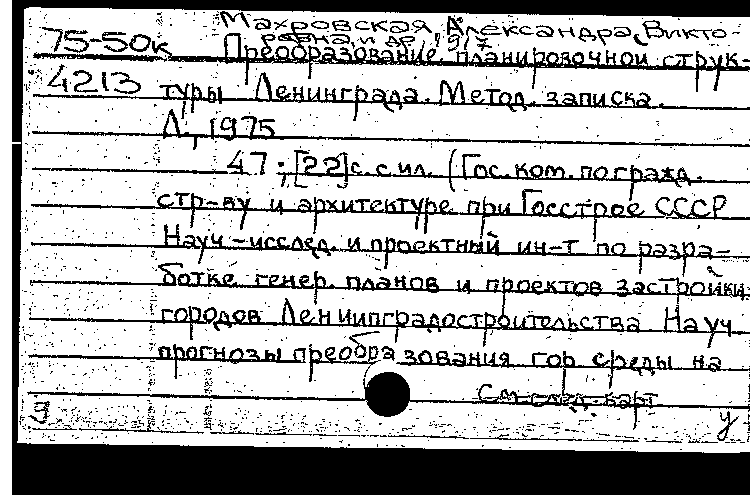 Махровская, Александра Викто-
ровна и др., 917
75-50к Преобразование планировочной струк-
4213 туры Ленинграда. Метод. записка.
Л., 1975
47; [22]с. с ил. (Гос. ком. по гражд.
стр-ву и архитектуре при Госстрое СССР
Науч-исслед. и проектный ин-т по разра-
ботке генер. планов и проектов застройки
городов Ленниипградостроительства Науч
прогнозы преобразования гор среды на
См. след. карт
9 у